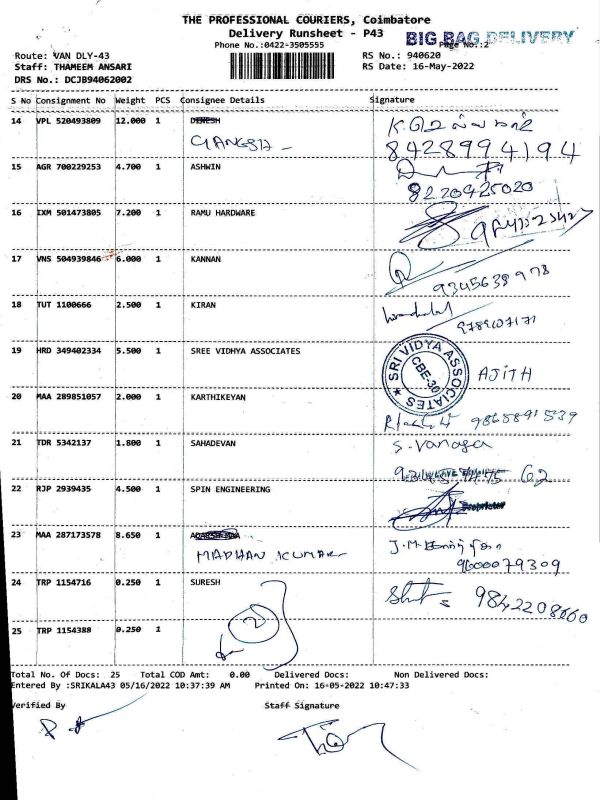 THE PROFESSIONAL COURIERS, Coimbatore
Delivery Runsheet - P43
BIG BAG DELIVERY
Phone No.:0422-3505555
Page No.:2
Route: VAN DLY-43
RS No.: 940620
Staff: THAMEEM ANSARI
RS Date: 16-May-2022
DRS No.: DCJB94062002
S No Consignment No Weight PCS Consignee Details Signature
14 VPL 520493809 12.000 1 DINESH
8428994194
15 AGR 700229253 4.700 1 ASHWIN
8220925020
16 IXM 501473805 7.200 1 RAMU HARDWARE
17 VNS 504939846 6.000 1 KANNAN
9345638978
18 TUT 1100666 2.500 1 KIRAN
19 HRD 349402334 5.500 1 SREE VIDHYA ASSOCIATES
SRI VIDYA ASSOCIATES
CBE-30
AJITH
20 MAA 289851057 2.000 1 KARTHIKEYAN
9865891539
21 TDR 5342137 1.800 1 SAHADEVAN
22 RJP 2939435 4.500 1 SPIN ENGINEERING
Proprietor
23 MAA 287173578 8.650 1
MADHAN KUMAR
9600079309
24 TRP 1154716 0.250 1 SURESH
9842208660
25 TRP 1154388 0.250 1
2
Total No. Of Docs: 25 Total COD Amt: 0.00 Delivered Docs: Non Delivered Docs:
Entered By :SRIKALA43 05/16/2022 10:37:39 AM Printed On: 16-05-2022 10:47:33
Verified By Staff Signature